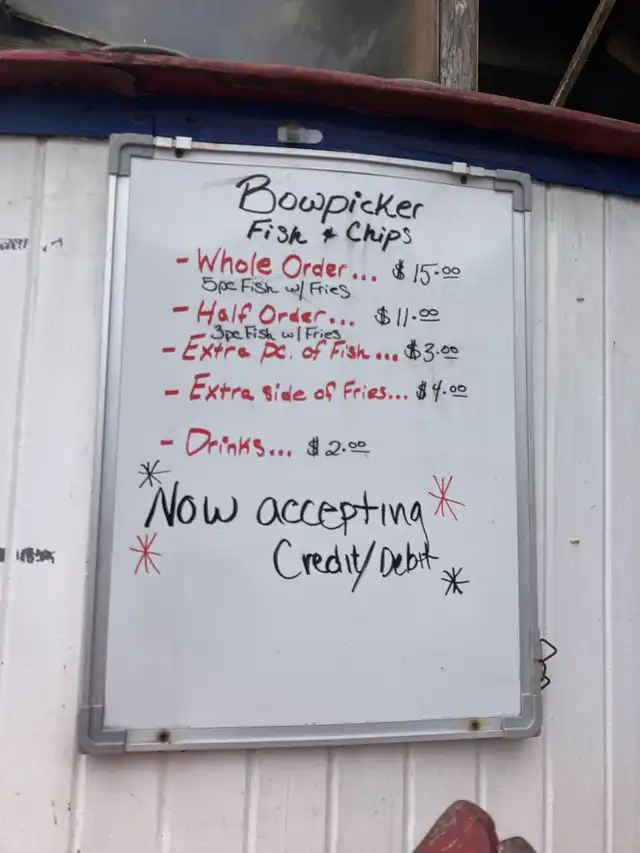 Bowpicker
Fish & Chips
- Whole Order... $15.00
5pc Fish w/ Fries
- Half Order... $11.00
3pc Fish w/ Fries
- Extra pc. of Fish... $3.00
- Extra side of Fries... $4.00
- Drinks... $2.00
Now accepting
Credit/Debit